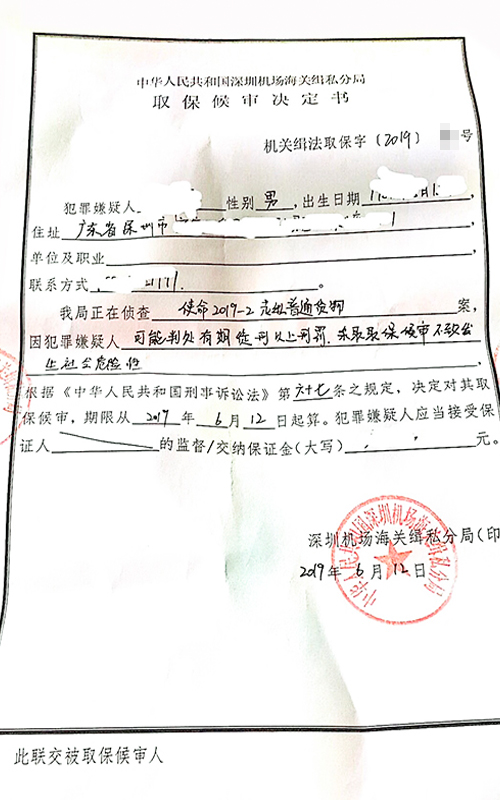 中华人民共和国深圳机场海关缉私分局
取保候审决定书
机关缉法取保字〔2019〕 号
犯罪嫌疑人 性别 男 ,出生日期 ,
住址 广东省深圳市 ,
单位及职业 ,
联系方式 。
我局正在侦查 使命2019-2走私普通货物 案,
因犯罪嫌疑人 可能判处有期徒刑以上刑罚,采取取保候审不致发
生社会危险性 ,
根据《中华人民共和国刑事诉讼法》第 六十七 条之规定,决定对其取
保候审,期限从 2019 年 6 月 12 日起算。犯罪嫌疑人应当接受保
证人 的监督/交纳保证金(大写) 元。
深圳机场海关缉私分局(印
2019年 6 月 12 日
中华人民共和国深圳机场海关缉私分局
此联交被取保候审人